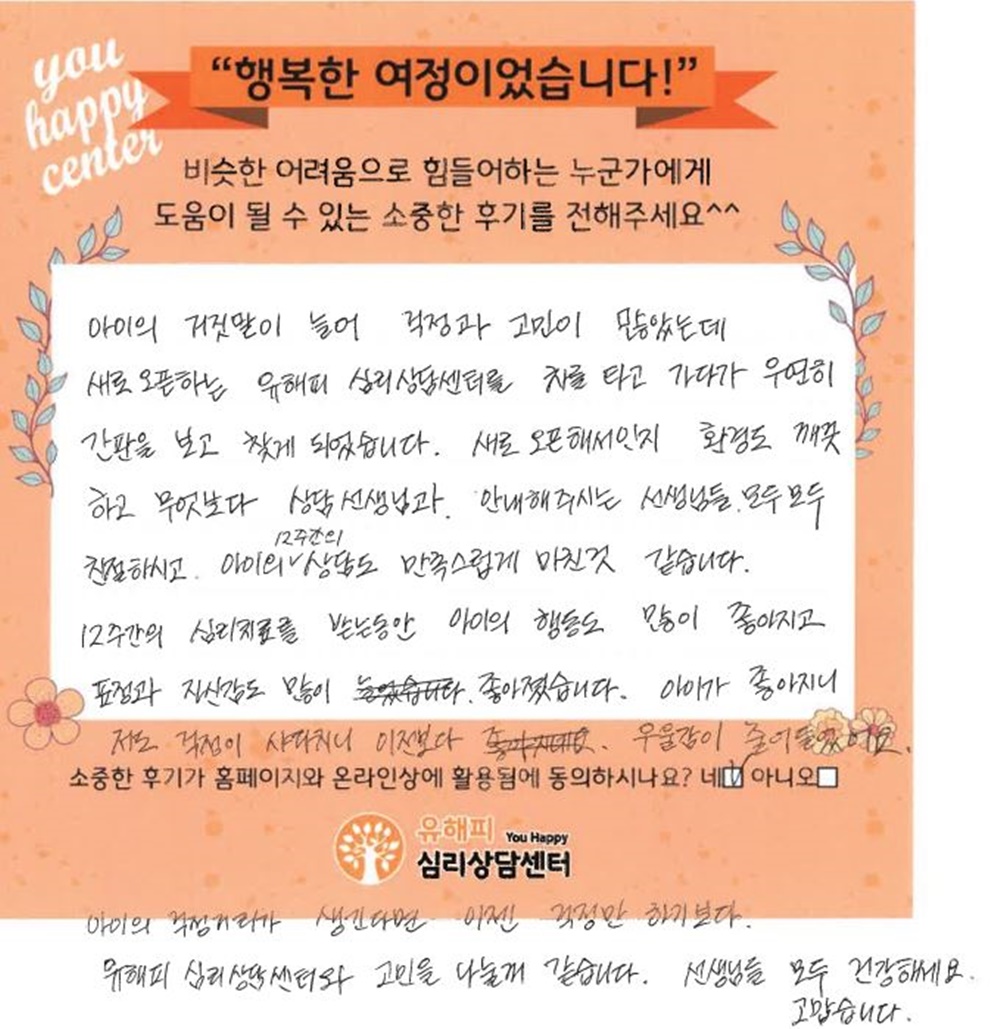 you
happy
center
“행복한 여정이었습니다!”
비슷한 어려움으로 힘들어하는 누군가에게
도움이 될 수 있는 소중한 후기를 전해주세요^^
아이의 거짓말이 늘어 걱정과 고민이 많았는데
새로 오픈하는 유해피 심리상담센터를 차를 타고 가다가 우연히
간판을 보고 찾게 되었습니다. 새로 오픈해서인지 환경도 깨끗
하고 무엇보다 상담선생님과. 안내해주시는 선생님들.모두모두
12주간의
친절하시고. 아이의 상담도 만족스럽게 마친것 같습니다.
12주간의 심리치료를 받는동안 아이의 행동도 많이 좋아지고
표정과 자신감도 많이 늘었습니다. 좋아졌습니다. 아이가 좋아지니
저도 걱정이 사라지니 이전보다 좋아지네요. 우울감이 줄어들었어요.
소중한 후기가 홈페이지와 온라인상에 활용됨에 동의하시나요? 네 아니오
유해피 You Happy
심리상담센터
아이의 걱정거리가 생긴다면 이젠 걱정만 하기보다.
유해피 심리상담센터와 고민을 나눌께 같습니다. 선생님들 모두 건강해세요.
고맙습니다.